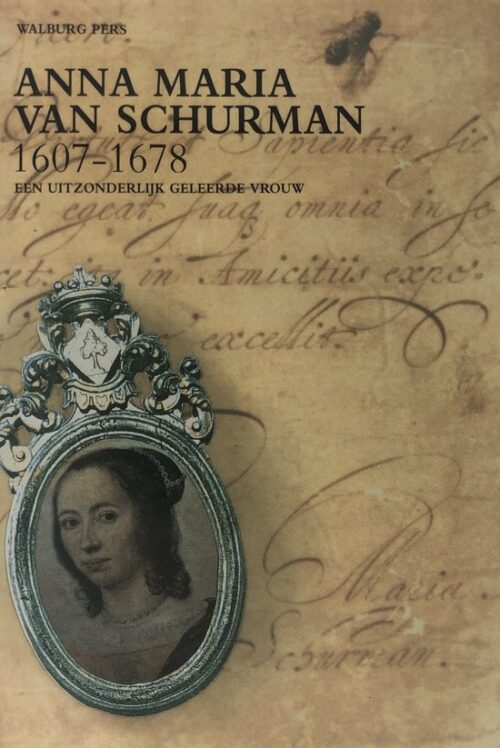 WALBURG PERS
ANNA MARIA
VAN SCHURMAN
1607–1678
EEN UITZONDERLIJK GELEERDE VROUW
Sapientia sic
egeat, suaq omnia in se
in Amicitiis expo-
excellit.
Maria
Schurman.